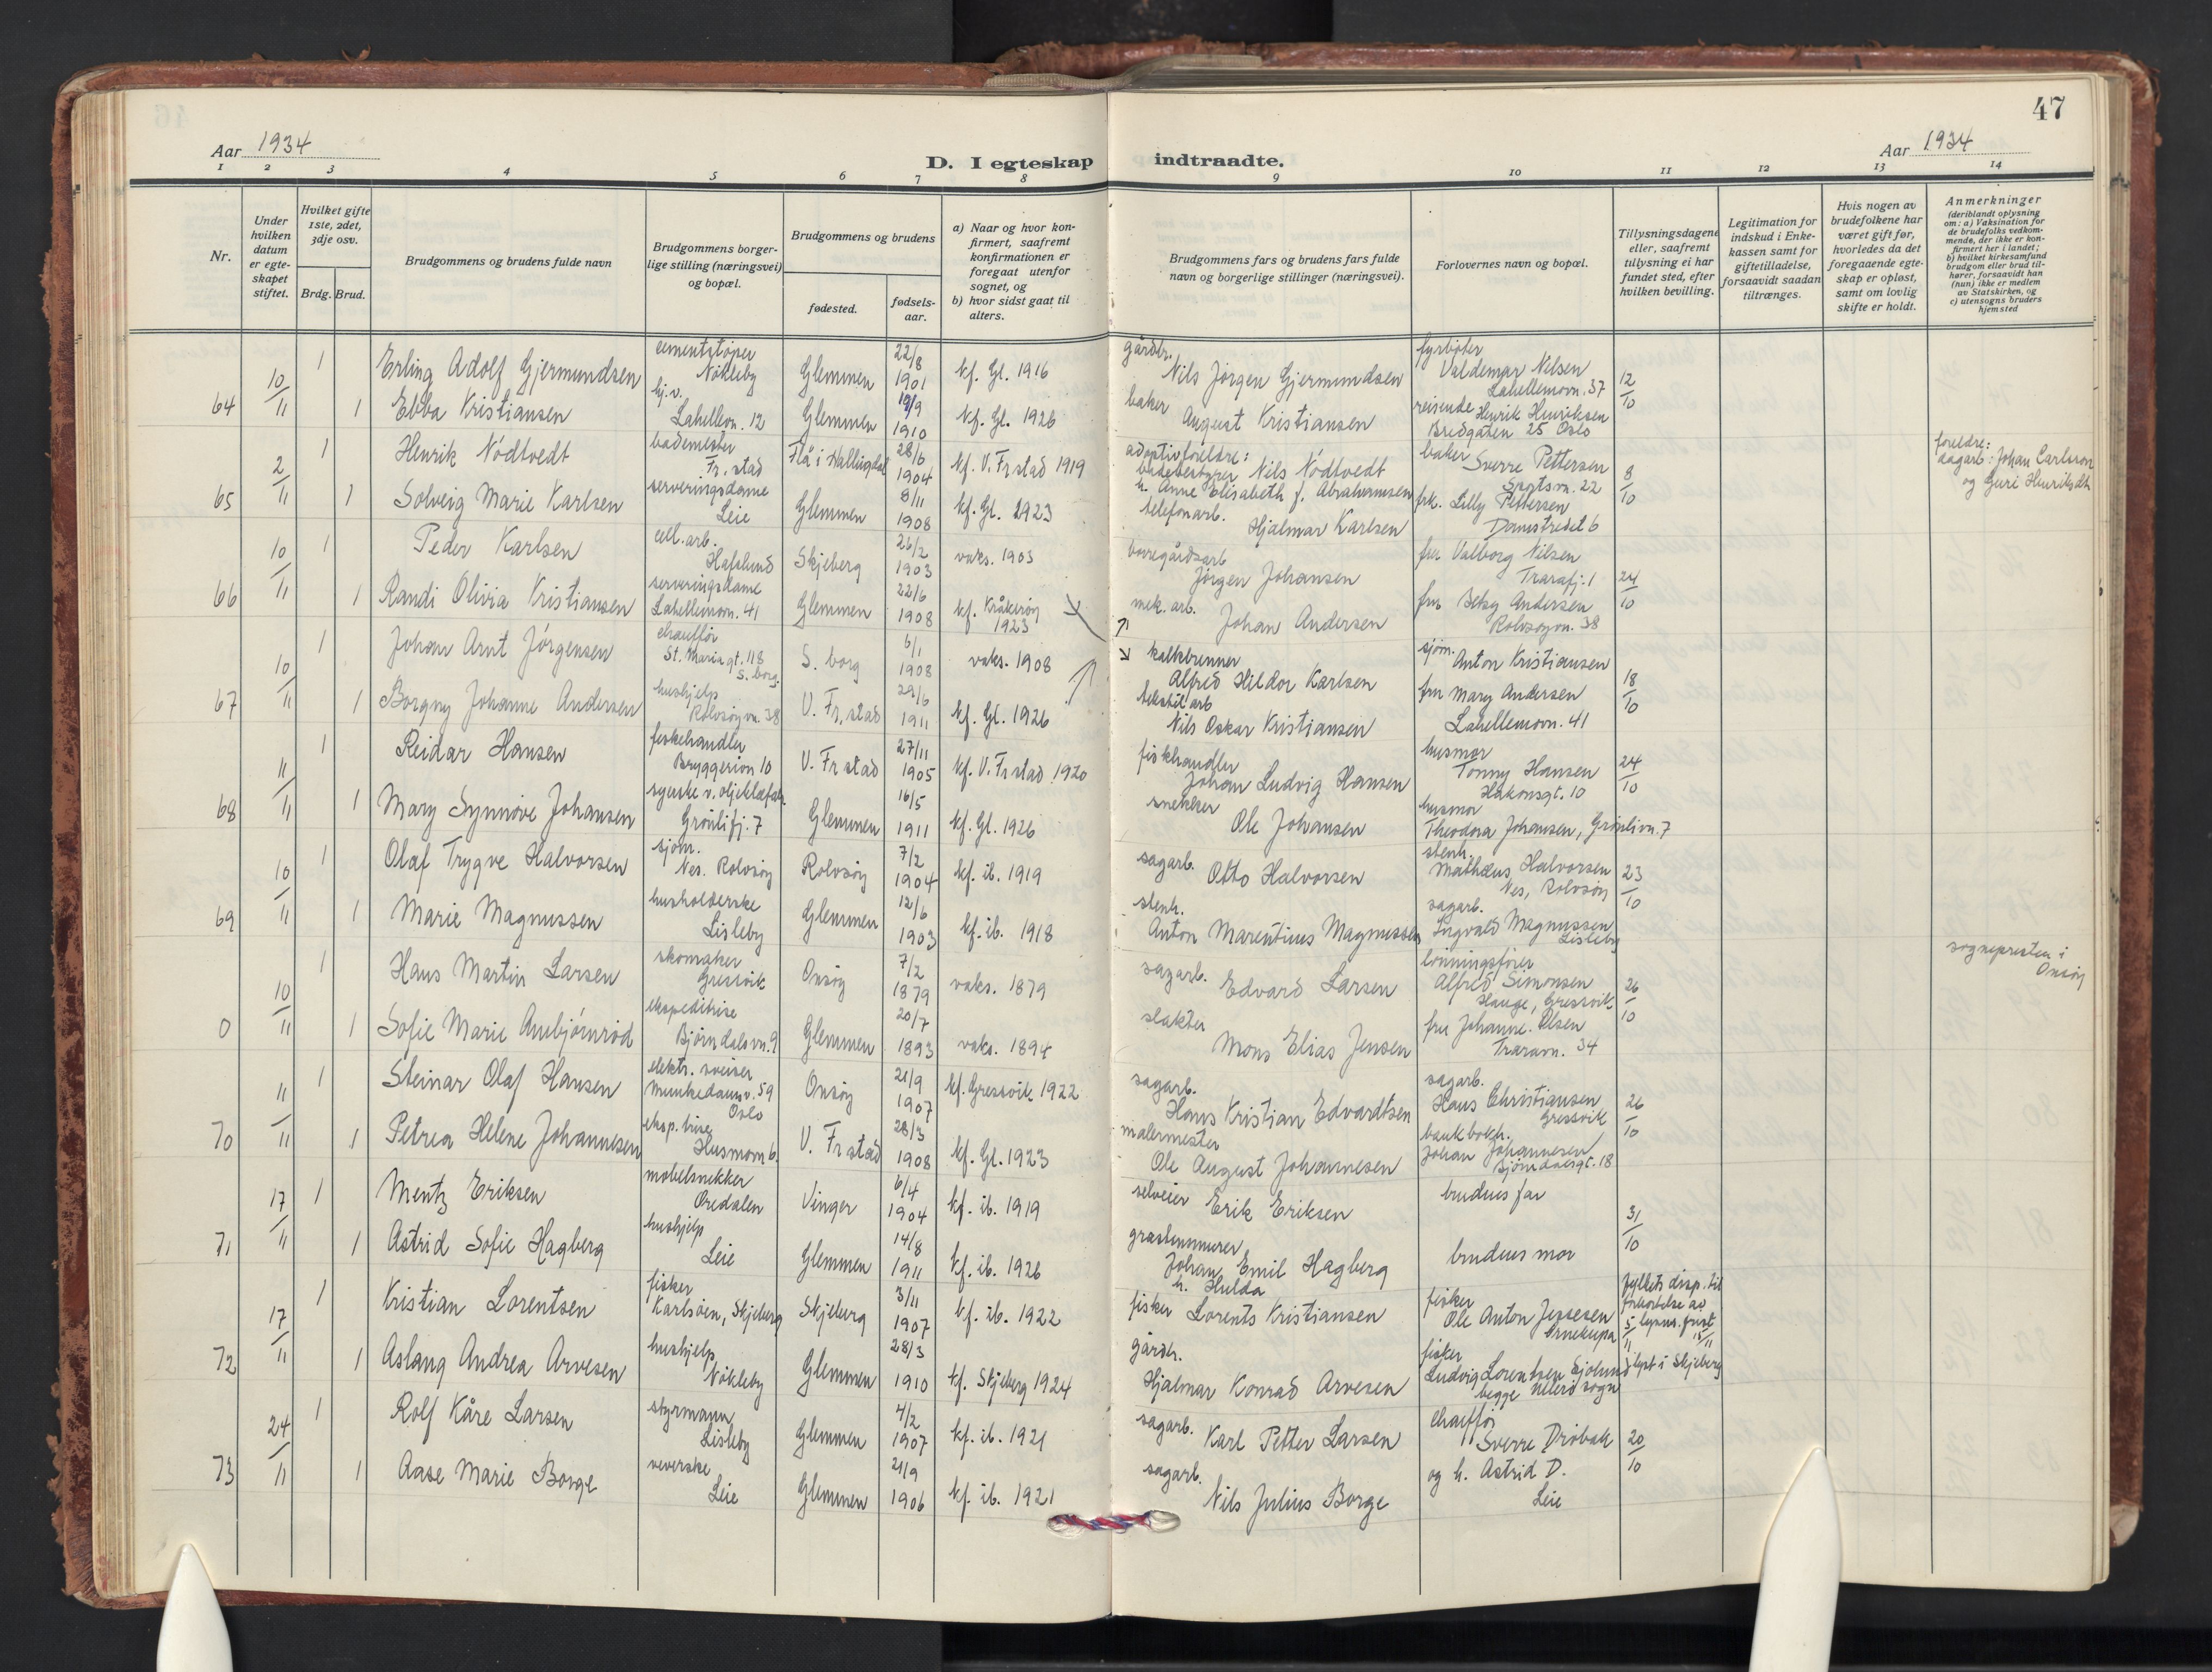 47
Aar 1934
D. I egteskap indtraadte.
Aar 1934
1 2 3 4 5 6 7 8 9 10 11 12 13 14
Nr.
Under hvilken datum er egte-skapet stiftet.
Hvilket gifte 1ste, 2det, 3dje osv.
Brdg. Brud.
Brudgommens og brudens fulde navn
Brudgommens borger-lige stilling (næringsvei) og bopæl.
Brudgommens og brudens
fødested.
fødsels-aar.
a) Naar og hvor kon-firmert, saafremt konfirmationen er foregaat utenfor sognet, og
b) hvor sidst gaat til alters.
Brudgommens fars og brudens fars fulde navn og borgerlige stillinger (næringsvei).
Forlovernes navn og bopæl.
Tillysningsdagene eller, saafremt tillysning ei har fundet sted, efter hvilken bevilling.
Legitimation for indskud i Enke-kassen samt for giftetilladelse, forsaavidt saadan tiltrænges.
Hvis nogen av brudefolkene har været gift før, hvorledes da det foregaaende egte-skap er opløst, samt om lovlig skifte er holdt.
Anmerkninger
(deriblandt oplysning om: a) Vaksination for de brudefolks vedkom-mende, der ikke er kon-firmert her i landet; b) hvilket kirkesamfund brudgom eller brud til-hører, forsaavidt han (hun) ikke er medlem av Statskirken, og c) utensogns bruders hjemsted
10/11 1 Erling Adolf Gjermundsen cementstøper Nøkleby Glemmen 22/8 1901 kf. Gl. 1916 gårdbr. Nils Jørgen Gjermundsen fyrbøter Valdemar Nilsen Lahellemovn. 37 12/10
64 1 Ebba Kristiansen hj.v. Lahellevn. 12 Glemmen 19/9 1910 kf. Gl. 1926 baker August Kristiansen reisende Henrik Henriksen Bredgaten 25 Oslo
2/11 1 Henrik Nødtvedt bademester Fr.stad Flå i Hallingdal 28/6 1904 kf. V. Fr.stad 1919 adoptivforeldre: badebestyrer Nils Nødtvedt h. Anne Elisabeth f. Abrahamsen baker Sverre Pettersen Sportsvn. 22 8/10 foreldre: dagarb: Johan Carlsson og Guri Henriksdtr
65 1 Solveig Marie Karlsen serveringsdame Leie Glemmen 8/11 1908 kf. Gl. 1923 telefonarb. Hjalmar Karlsen frk. Lilly Pettersen Damstredet 6
10/11 1 Peder Karlsen cell.arb. Hafslund Skjeberg 26/2 1903 vaks. 1903 borregårdsarb Jørgen Johansen fru Valborg Nilsen Trarafj. 1 24/10
66 1 Randi Olivia Kristiansen serveringsdame Lahellemovn. 41 Glemmen 22/6 1908 kf. Kråkerøy 1923 mek. arb. Johan Andersen fru Betsy Andersen Rolvsøyvn. 38
10/11 1 Johan Arnt Jørgensen chauffør St. Mariegt. 118 S. borg. S. borg 6/1 1908 vaks. 1908 kalkbrenner Alfred Hildor Karlsen sjøm. Anton Kristiansen 18/10
67 1 Borgny Johanne Andersen hushjelp Rolvsøyvn. 38 V. Fr.stad 29/6 1911 kf. Gl. 1926 tekstil arb Nils Oskar Kristiansen fru Mary Andersen Lahellemovn. 41
11/11 1 Reidar Hansen fiskehandler Bryggerivn 10 V. Fr stad 27/11 1905 kf. V. Fr stad 1920 fiskhandler Johan Ludvig Hansen husmor Tonny Hansen Håkonsgt. 10 24/10
68 1 Mary Synnøve Johansen syerske v. oljeklæfab. Grønlifj. 7 Glemmen 16/5 1911 kf. Gl. 1926 snekker Ole Johansen husmor Theodora Johansen, Grønlivn. 7
10/11 1 Olaf Trygve Halvorsen sjøm. Nes. Rolvsøy Rolvsøy 7/2 1904 kf. ib. 1919 sagarb. Otto Halvorsen stenh. Mathæus Halvorsen Nes, Rolvsøy 23/10
69 1 Marie Magnussen husholderske Lisleby Glemmen 12/6 1903 kf. ib. 1918 stenh. Anton Marentinus Magnussen sagarb. Ingvald Magnussen Lisleby
10/11 1 Hans Martin Larsen skomaker Gressvik Onsøy 7/2 1879 vaks. 1879 sagarb. Edvard Larsen lønningsfører Alfred Simonsen Hauge, Gressvik 26/10 sognepresten i Onsøy
0 1 Sofie Marie Ambjørnrød ekspeditrise Bjørndalsvn. 9 Glemmen 20/7 1893 vaks. 1894 slakter Mons Elias Jensen fru Johanne Olsen Traravn. 34
11/11 1 Steinar Olaf Hansen elektr. sveiser Munkedamsv. 59 Oslo Onsøy 21/9 1907 kf. Gressvik 1922 sagarb. Hans Kristian Edvardtsen sagarb. Hans Christiansen Gressvik 26/10
70 1 Petrea Helene Johannesen eksp. trise Husmovn 6. V. Fr stad 28/3 1908 kf. Gl. 1923 malermester Ole August Johannesen bankbokh. Johan Johannesen Bjørndalsgt. 18
17/11 1 Mentz Eriksen møbelsnekker Øredalen Vinger 6/4 1904 kf. ib. 1919 selveier Erik Eriksen brudens far 31/10
71 1 Astrid Sofie Hagberg hushjelp Leie Glemmen 14/8 1911 kf. ib. 1926 Johan Emil Hagberg h. Hulda brudens mor
17/11 1 Kristian Lorentsen fisker Karlsøen, Skjeberg Skjeberg 3/11 1907 kf. ib. 1922 fisker Lorents Kristiansen fisker Ole Anton Jepsesen fylkets disp. til forkortelse av lysn. frist 15/11 5/11
72 1 Aslaug Andrea Arvesen hushjelp Nøkleby Glemmen 28/3 1910 kf. Skjeberg 1924 gårdbr. Hjalmar Konrad Arvesen fisker Ludvig Lorentsen Sjølund begge Ullerø sogn lyst i Skjeberg
24/11 1 Rolf Kåre Larsen styrmann Lisleby Glemmen 4/2 1907 kf. ib. 1921 sagarb. Karl Petter Larsen chauffør Sverre Drøbak 20/10
73 1 Aase Marie Borge veverske Leie Glemmen 21/9 1906 kf. ib. 1921 sagarb. Nils Julius Borge og h. Astrid D. Leie